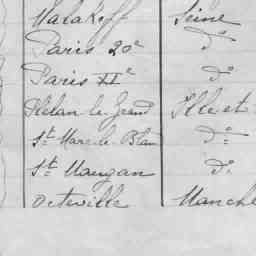 Malakoff Seine
Paris 20e do
Paris XIe do
Plélan-le-Grand Ille et
St Marc-le-Blanc do
St Maugan do
Octeville Manche